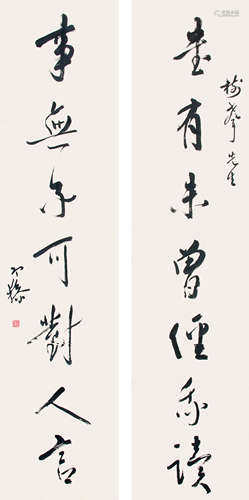 先生
書有未曾經我讀
事無不可對人言